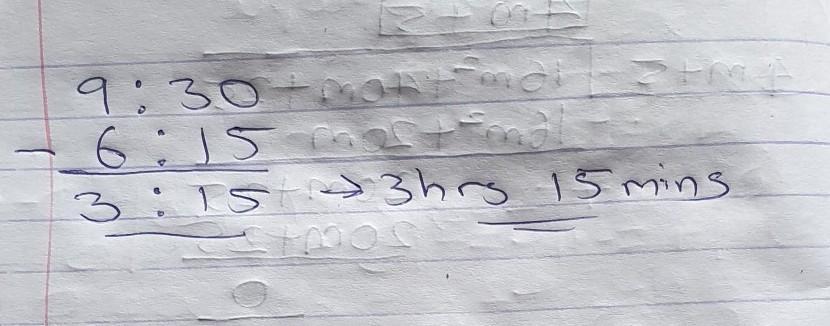 9:30
- 6:15
3:15 → 3hrs 15 mins